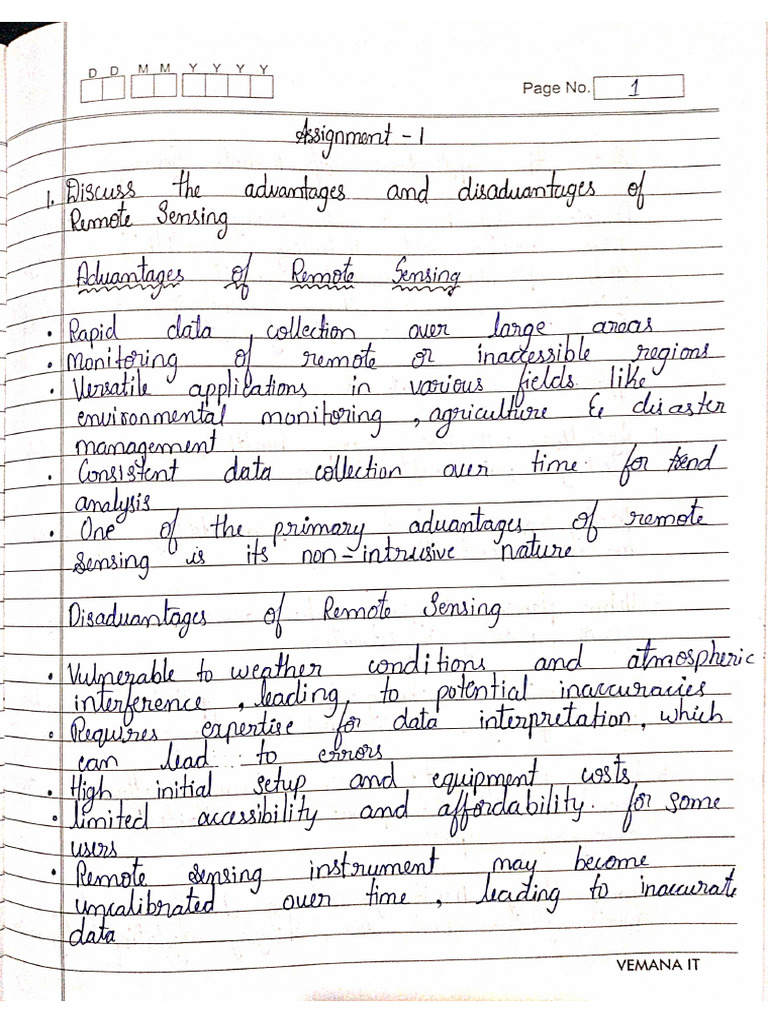 D D M M Y Y Y Y
Page No. 1
Assignment - 1
1. Discuss the advantages and disadvantages of
Remote Sensing
Advantages of Remote Sensing
• Rapid data collection over large areas
• Monitoring of remote or inaccessible regions
• Versatile applications in various fields like
environmental monitoring, agriculture & disaster
management
• Consistent data collection over time for trend
analysis
• One of the primary advantages of remote
sensing is its non-intrusive nature
Disadvantages of Remote Sensing
• Vulnerable to weather conditions and atmospheric
interference, leading to potential inaccuracies
• Requires expertise for data interpretation, which
can lead to errors
• High initial setup and equipment costs
• limited accessibility and affordability for some
users
• Remote sensing instrument may become
uncalibrated over time, leading to inaccurate
data
VEMANA IT